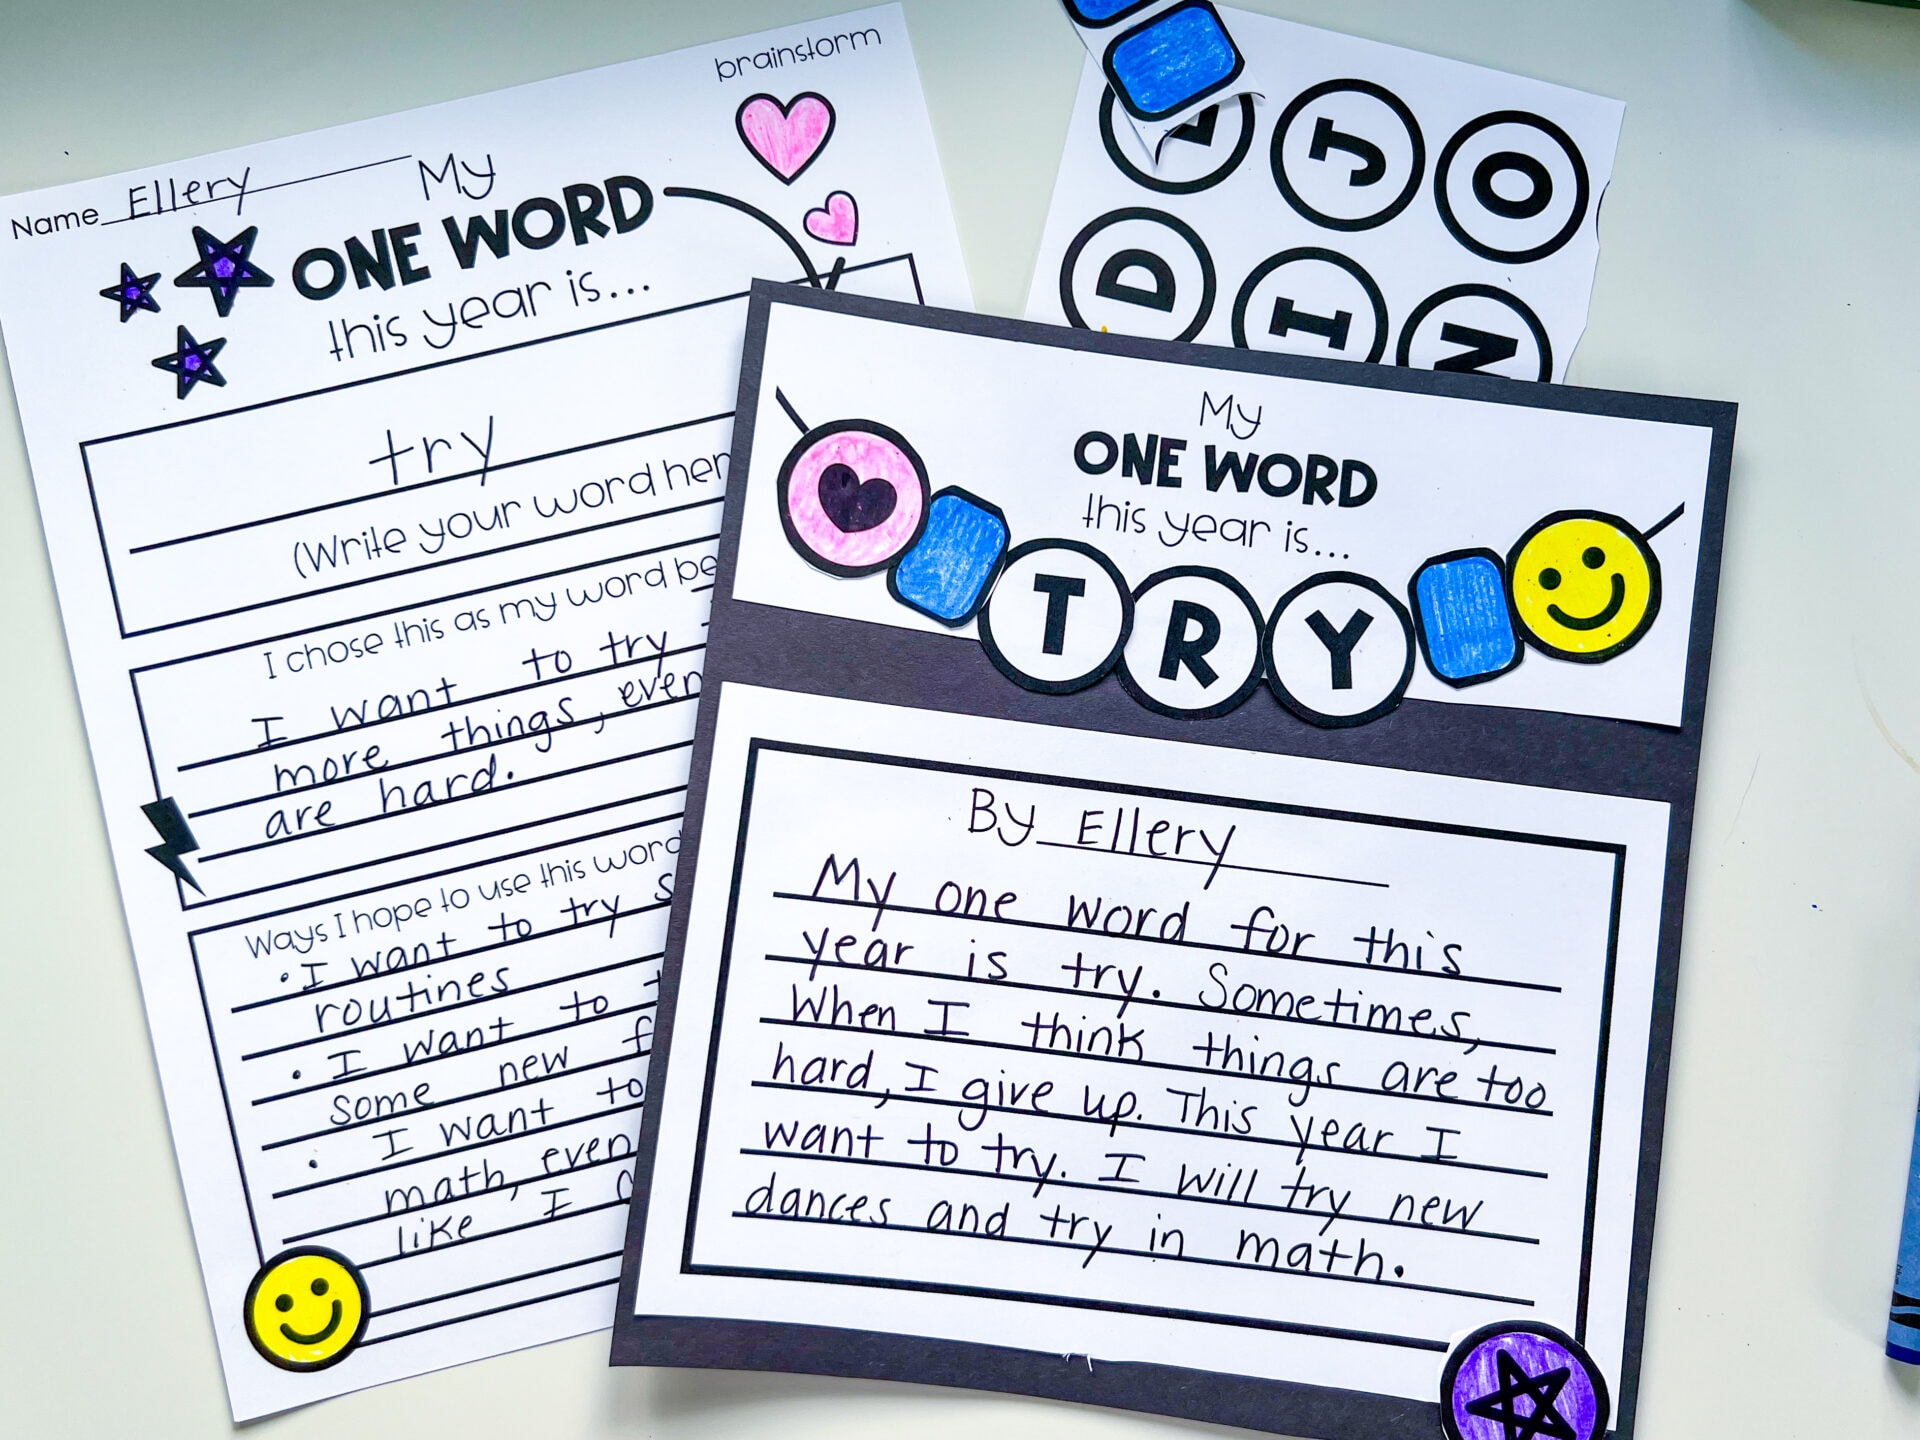 brainstorm
Name Ellery
My
ONE WORD
this year is...
try
(Write your word her
I chose this as my word be
I want to try
more things, even
are hard.
Ways I hope to use this word
• I want to try s
routines
• I want to
some new f
• I want to
math, even
like I
J O
D I N
My
ONE WORD
this year is...
TRY
By Ellery
My one word for this
year is try. Sometimes,
When I think things are too
hard, I give up. This year I
want to try. I will try new
dances and try in math.